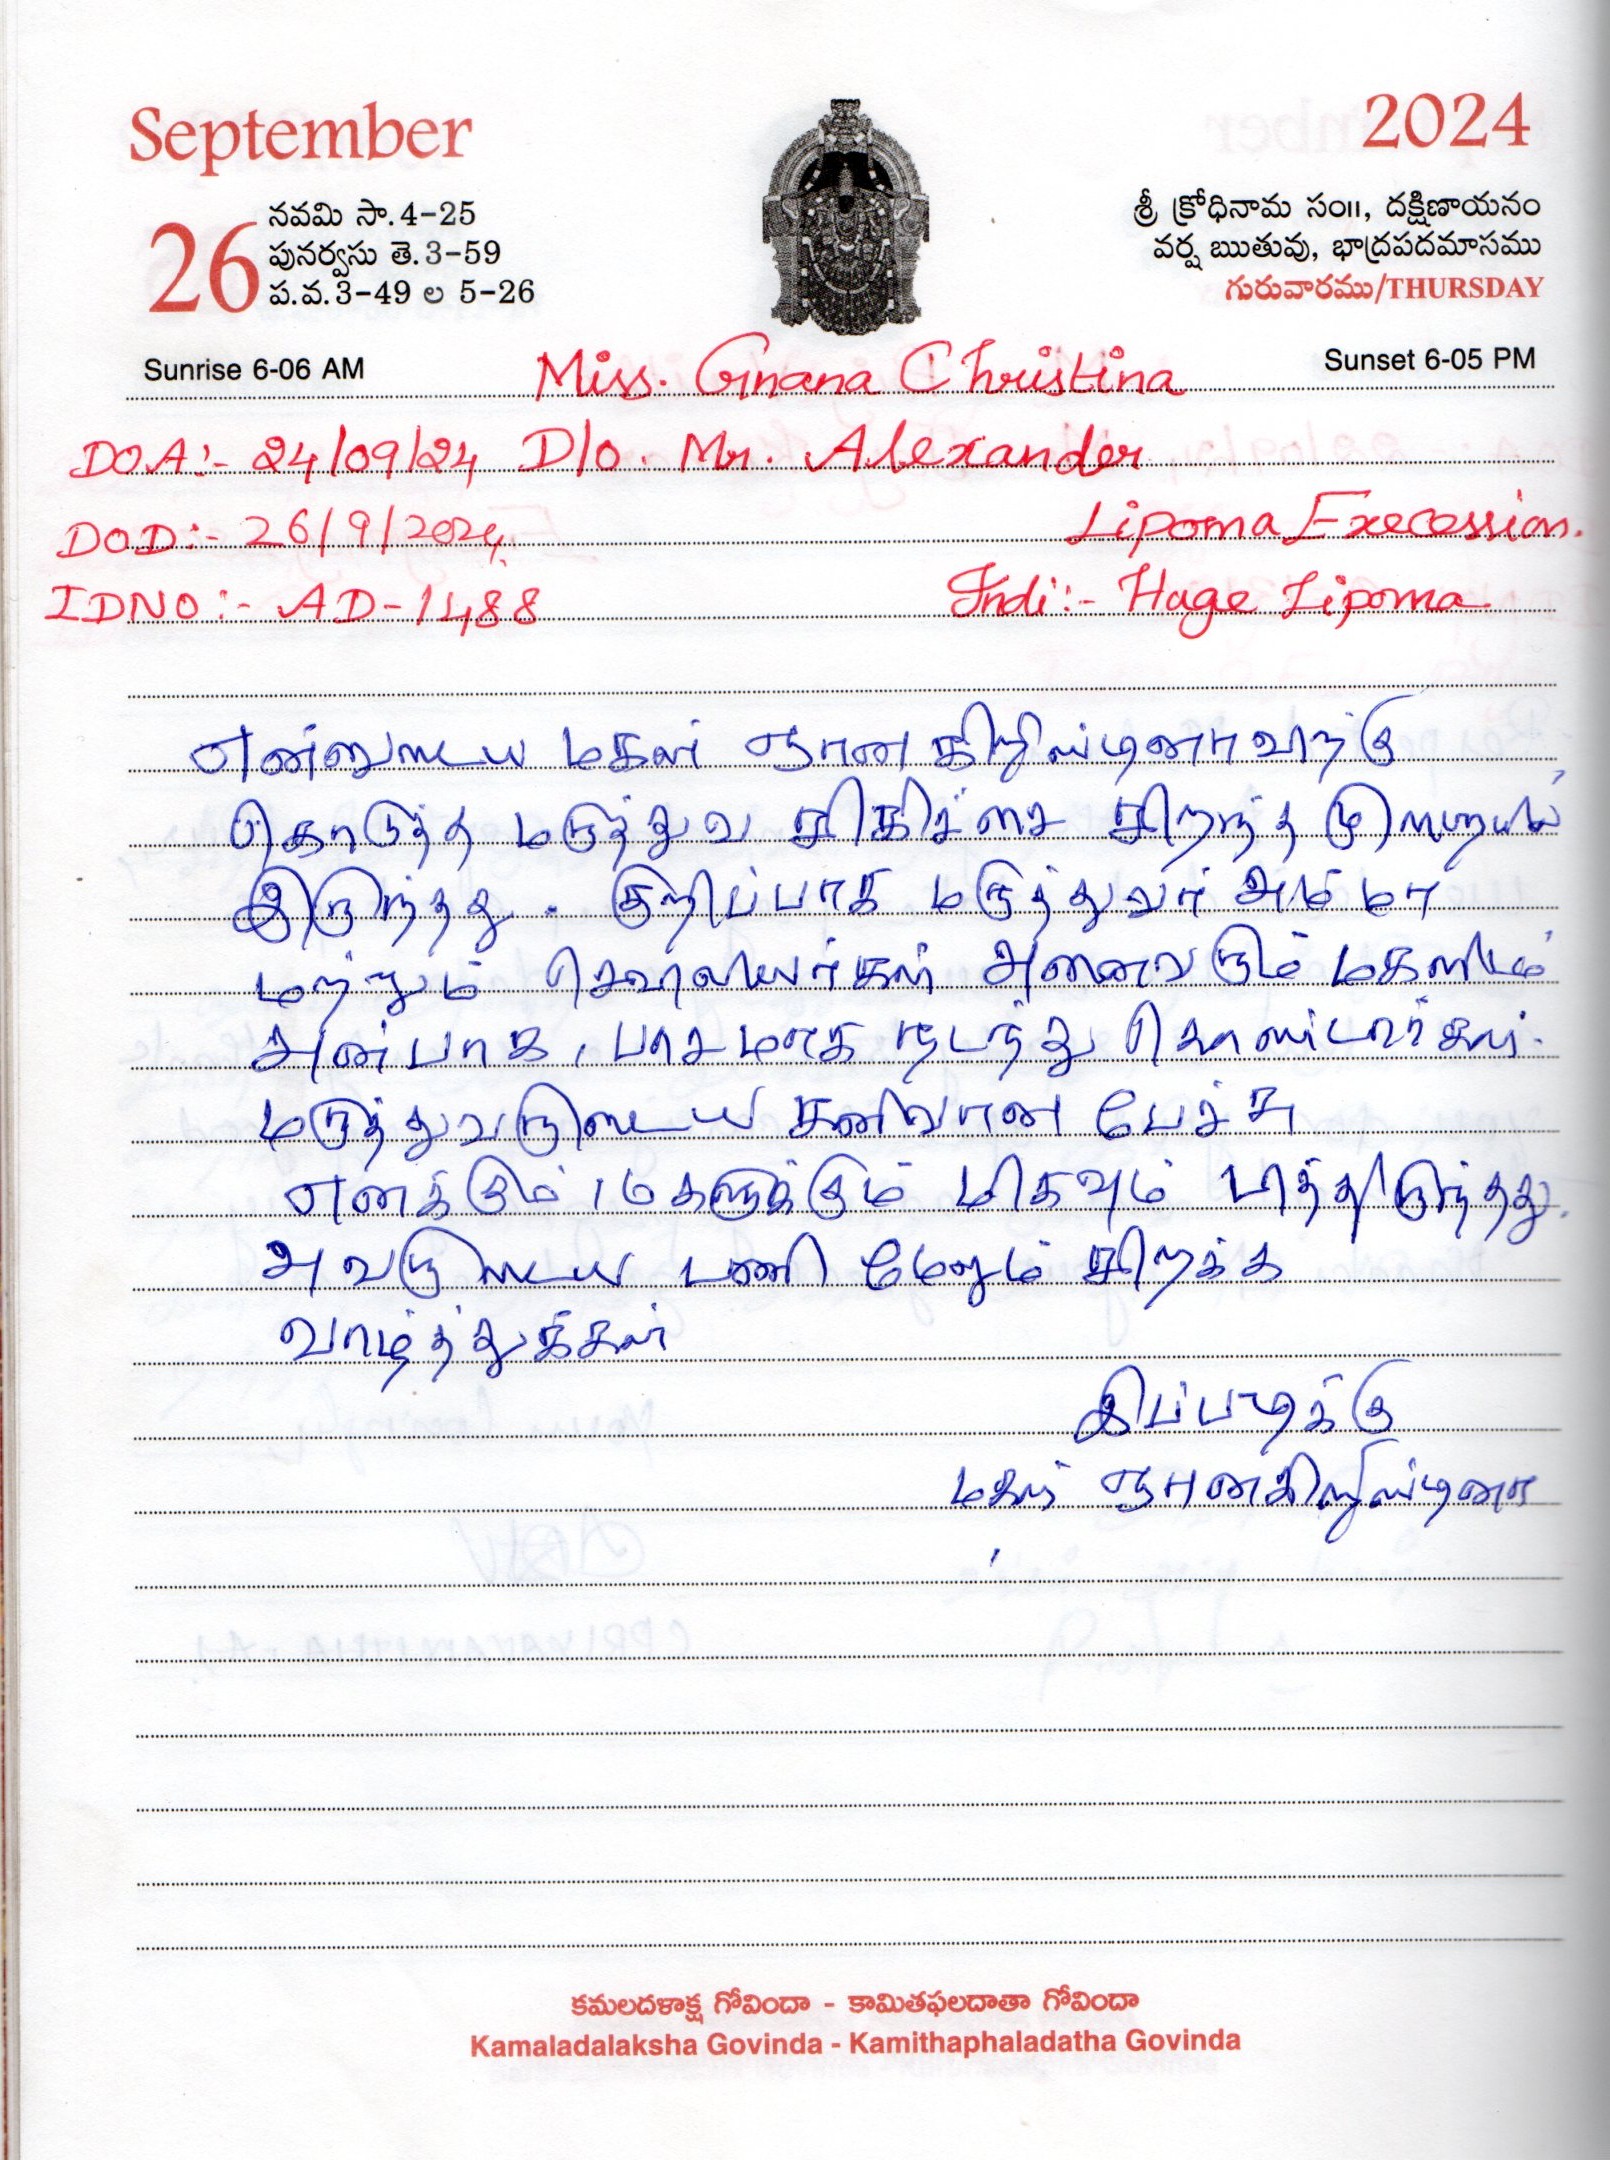 September
2024
26
నవమి సా. 4-25
పునర్వసు తె. 3-59
ప.వ. 3-49 ల 5-26
శ్రీ క్రోధినామ సం॥, దక్షిణాయనం
వర్ష ఋతువు, భాద్రపదమాసము
గురువారము/THURSDAY
Sunrise 6-06 AM
Sunset 6-05 PM
Miss. Gnana Christina
DOA:- 24/09/24 D/o. Mr. Alexander
DOD:- 26/9/2024 Lipoma Execession.
IDNO:- AD-1488 Indi:- Huge Lipoma
என்னுடைய மகள் ஞான கிறிஸ்டினாவிற்கு
கொடுத்த மருத்துவ சிகிச்சை சிறந்த முறையில்
இருந்தது. குறிப்பாக மருத்துவர் அம்மா
மற்றும் செவிலியர்கள் அனைவரும் மகளிடம்
அன்பாக, பாசமாக நடந்து கொண்டார்கள்.
மருத்துவருடைய கனிவான பேச்சு
எனக்கும், மகளுக்கும் மிகவும் பிடித்திருந்தது.
அவருடைய பணி மேலும் சிறக்க
வாழ்த்துக்கள்
இப்படிக்கு
மகள் ஞானகிறிஸ்டினா
కమలదళాక్ష గోవిందా - కామితఫలదాతా గోవిందా
Kamaladalaksha Govinda - Kamithaphaladatha Govinda